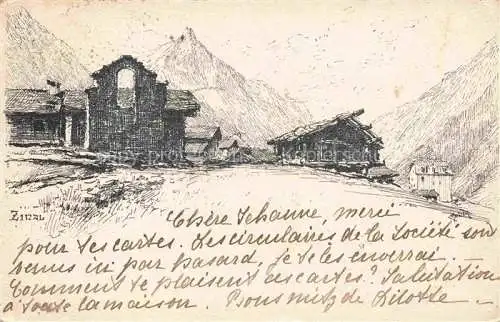 ZINAL
Chère Jehanne, merci
pour tes cartes. Les circulaires de la Société son
venus ici par hasard, je te les enverrai.
Comment te plaisent ces cartes? Salutation
à toute la maison. Bons de Lilotte